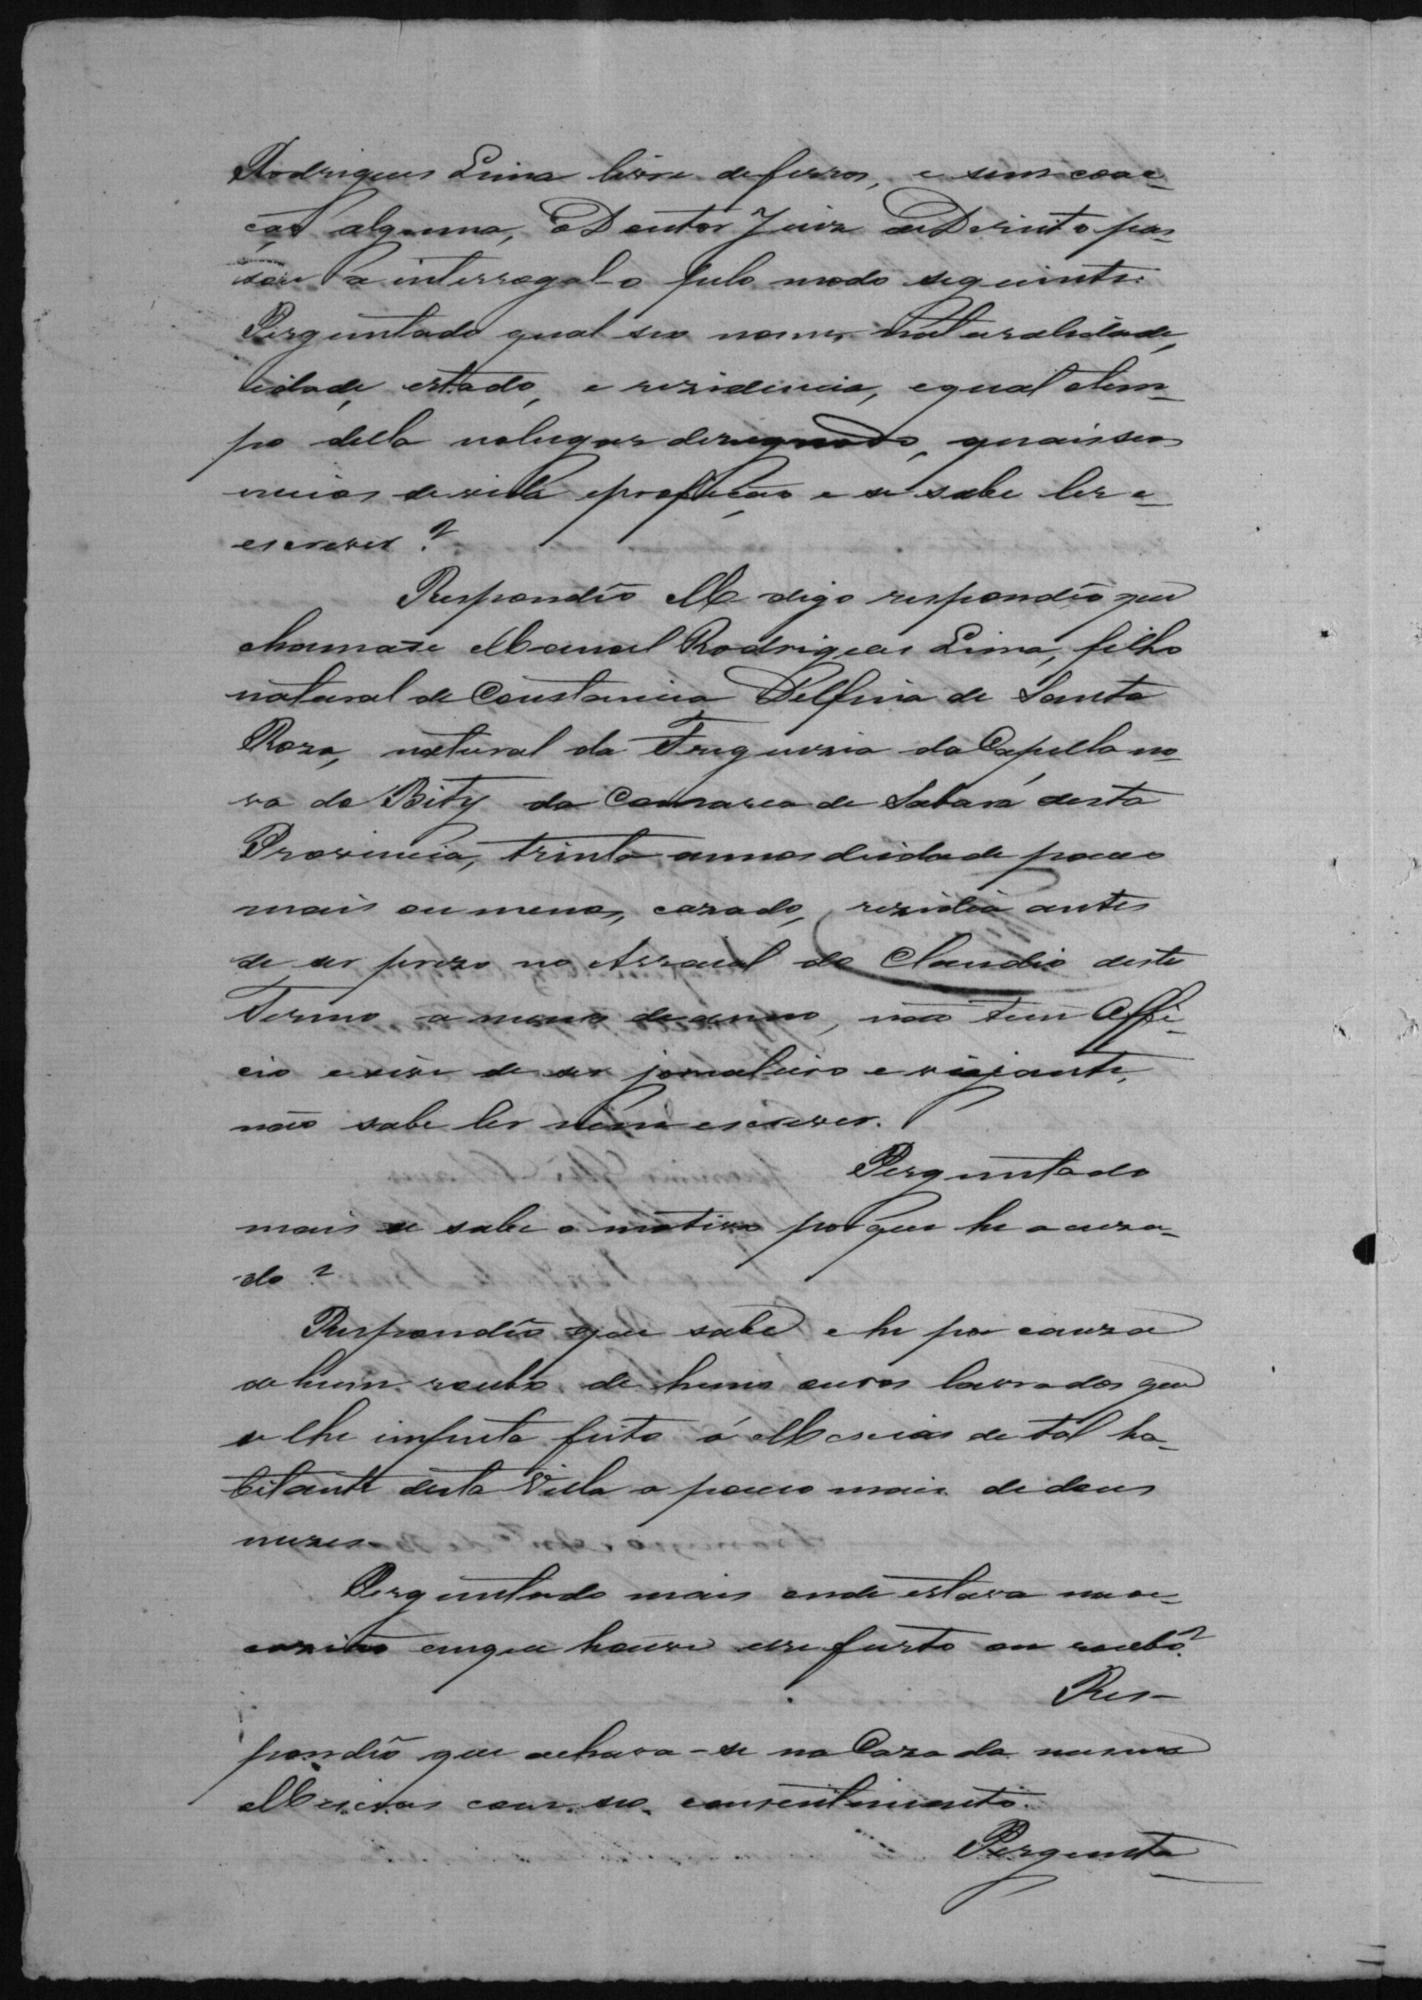 Rodrigues Lima livre de ferros, e sem coac-
ção alguma, o Doutor Juiz de Direito pas-
sou a interrogal-o pelo modo seguinte:
Perguntado qual seo nome, naturalidade,
idade, estado, e rezidencia, e qual o tem-
po della no lugar dezignado, quais seos
meios de vida e profição e se sabe ler e
escrever?
Respondêo M digo respondêo que
chama-se Manoel Rodrigues Lima, filho
natural de Constancia Delfina de Santa
Roza, natural da Freguezia da Capella no-
va do Bity da Comarca de Sabará desta
Provincia, trinta annos de idade pouco
mais ou menos, cazado, rezidia antes
de ser prezo no Arraial do Claudio deste
Termo a menos de anno, não tem Offi-
cio e vive de ser jornaleiro e viajante,
não sabe ler nem escrever.
Perguntado
mais se sabe o motivo porque he acuza-
do?
Respondêo que sabe e he por cauza
de hum roubo de huns ouros lavrados que
se lhe imputa feito á Messias de tal ha-
bitante desta Villa a pouco mais de dous
mezes.
Perguntado mais onde estava na oc-
cazião em que houve esse furto ou roubo?
Res-
pondêo que achava-se na Caza da mesma
Messias com seo consentimento.
Pergunta-